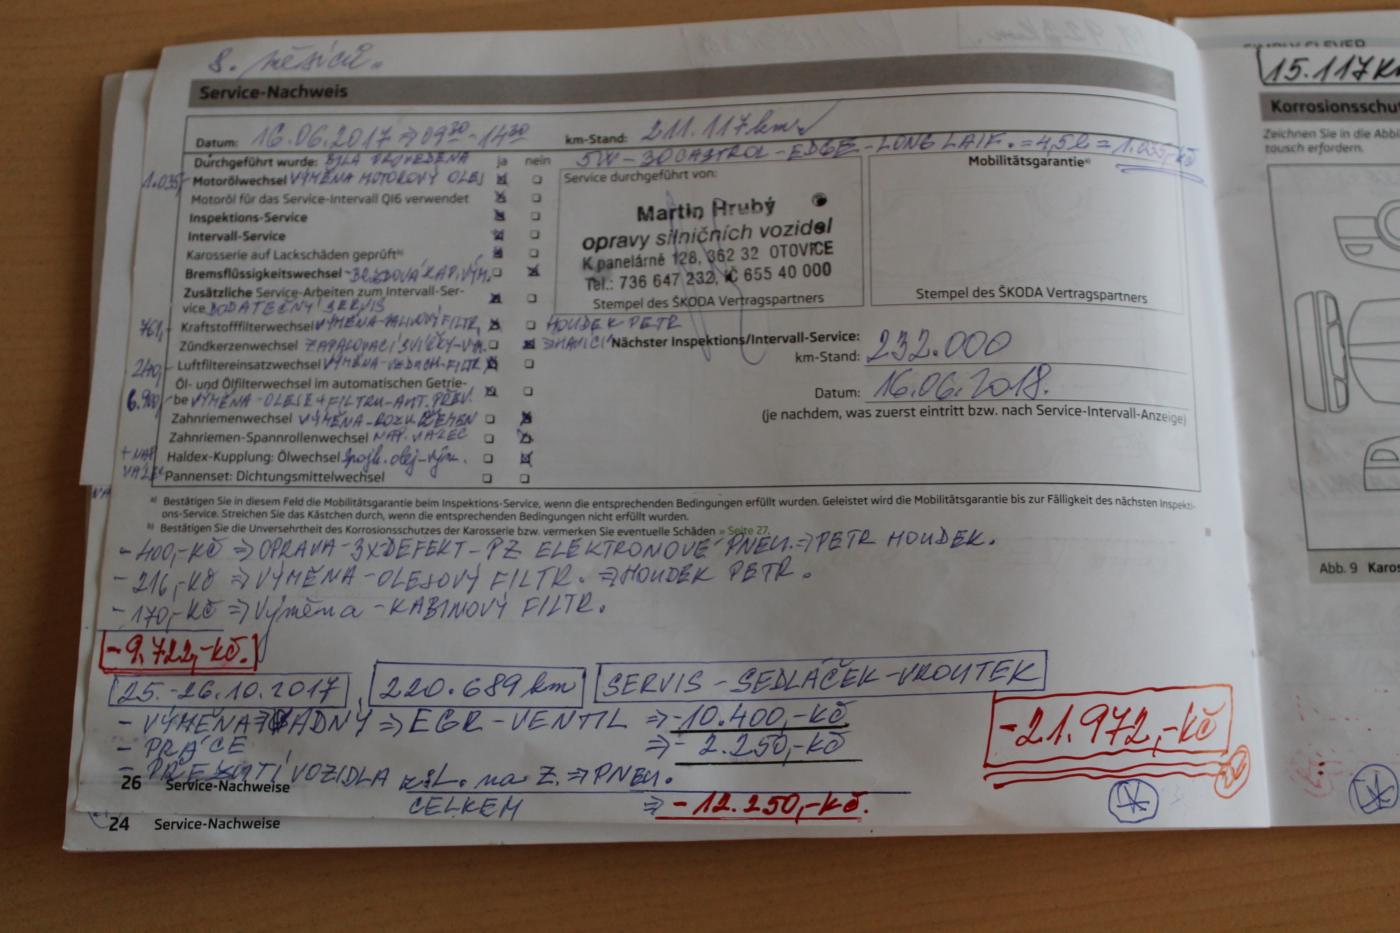 8. měsíců.
Service-Nachweis
Datum: 16.06.2017 ⇒ 09³⁰ - 14³⁰ km-Stand: 211.117 km
Durchgeführt wurde: BYLA PROVEDENA ja nein 5W-30 CASTROL-EDGE-LONG LAIF. = 4,5l = 1.035,-Kč
1.035,- Motorölwechsel VÝMĚNA MOTOROVÝ OLEJ
Motoröl für das Service-Intervall QI6 verwendet
Inspektions-Service
Intervall-Service
Karosserie auf Lackschäden geprüft ᵇ⁾
Bremsflüssigkeitswechsel - BRZDOVÁ KAP. VÝM.
Zusätzliche Service-Arbeiten zum Intervall-Ser-
vice DODATEČNÝ SERVIS
761,- Kraftstofffilterwechsel VÝMĚNA-PALIVOVÝ FILTR
Zündkerzenwechsel ZAPALOVACÍ SVÍČKY-VÝM.
240,- Luftfiltereinsatzwechsel VÝMĚNA-VZDUCH-FILTR
Öl- und Ölfilterwechsel im automatischen Getrie-
6.900,- be VÝMĚNA-OLEJE+FILTRU-AUT.PŘEV.
Zahnriemenwechsel VÝMĚNA-ROZV. ŘEMEN
Zahnriemen-Spannrollenwechsel NAP. VÁLEC
Haldex-Kupplung: Ölwechsel Spojk. olej-vým.
Pannenset: Dichtungsmittelwechsel
Service durchgeführt von:
Martin Hrubý
opravy silničních vozidel
K panelárně 128, 362 32 OTOVICE
Tel.: 736 647 232, IČ 655 40 000
Stempel des ŠKODA Vertragspartners
Mobilitätsgarantie ᵃ⁾
Stempel des ŠKODA Vertragspartners
HOUDEK PETR
ŽHAVICÍ
Nächster Inspektions/Intervall-Service:
km-Stand: 232.000
Datum: 16.06.2018.
(je nachdem, was zuerst eintritt bzw. nach Service-Intervall-Anzeige)
+ NAP.
VÁLEC
ᵃ⁾ Bestätigen Sie in diesem Feld die Mobilitätsgarantie beim Inspektions-Service, wenn die entsprechenden Bedingungen erfüllt wurden. Geleistet wird die Mobilitätsgarantie bis zur Fälligkeit des nächsten Inspekti-
ons-Service. Streichen Sie das Kästchen durch, wenn die entsprechenden Bedingungen nicht erfüllt wurden.
ᵇ⁾ Bestätigen Sie die Unversehrtheit des Korrosionsschutzes der Karosserie bzw. vermerken Sie eventuelle Schäden » Seite 27.
- 400,-Kč ⇒ OPRAVA-3XDEFEKT-PZ ELEKTRONOVÉ PNEU. ⇒ PETR HOUDEK.
- 216,-Kč ⇒ VÝMĚNA-OLEJOVÝ FILTR. ⇒ HOUDEK PETR.
- 170,-Kč ⇒ Výměna-KABINOVÝ FILTR.
- 9.722,-Kč.
25.-26.10.2017 220.689 km SERVIS-SEDLÁČEK-VROUTEK
- VÝMĚNA ⇒ VADNÝ ⇒ EGR-VENTIL ⇒ - 10.400,-Kč
- PRÁCE ⇒ - 2.250,-Kč
- PŘEZUTÍ VOZIDLA z L. na Z. ⇒ PNEU.
CELKEM ⇒ - 12.250,-Kč.
- 21.972,-Kč
26 Service-Nachweise
24 Service-Nachweise
SIMPLY CLEVER
15.117 Km
Korrosionsschut
Zeichnen Sie in die Abbi
tausch erfordern.
Abb. 9 Karos